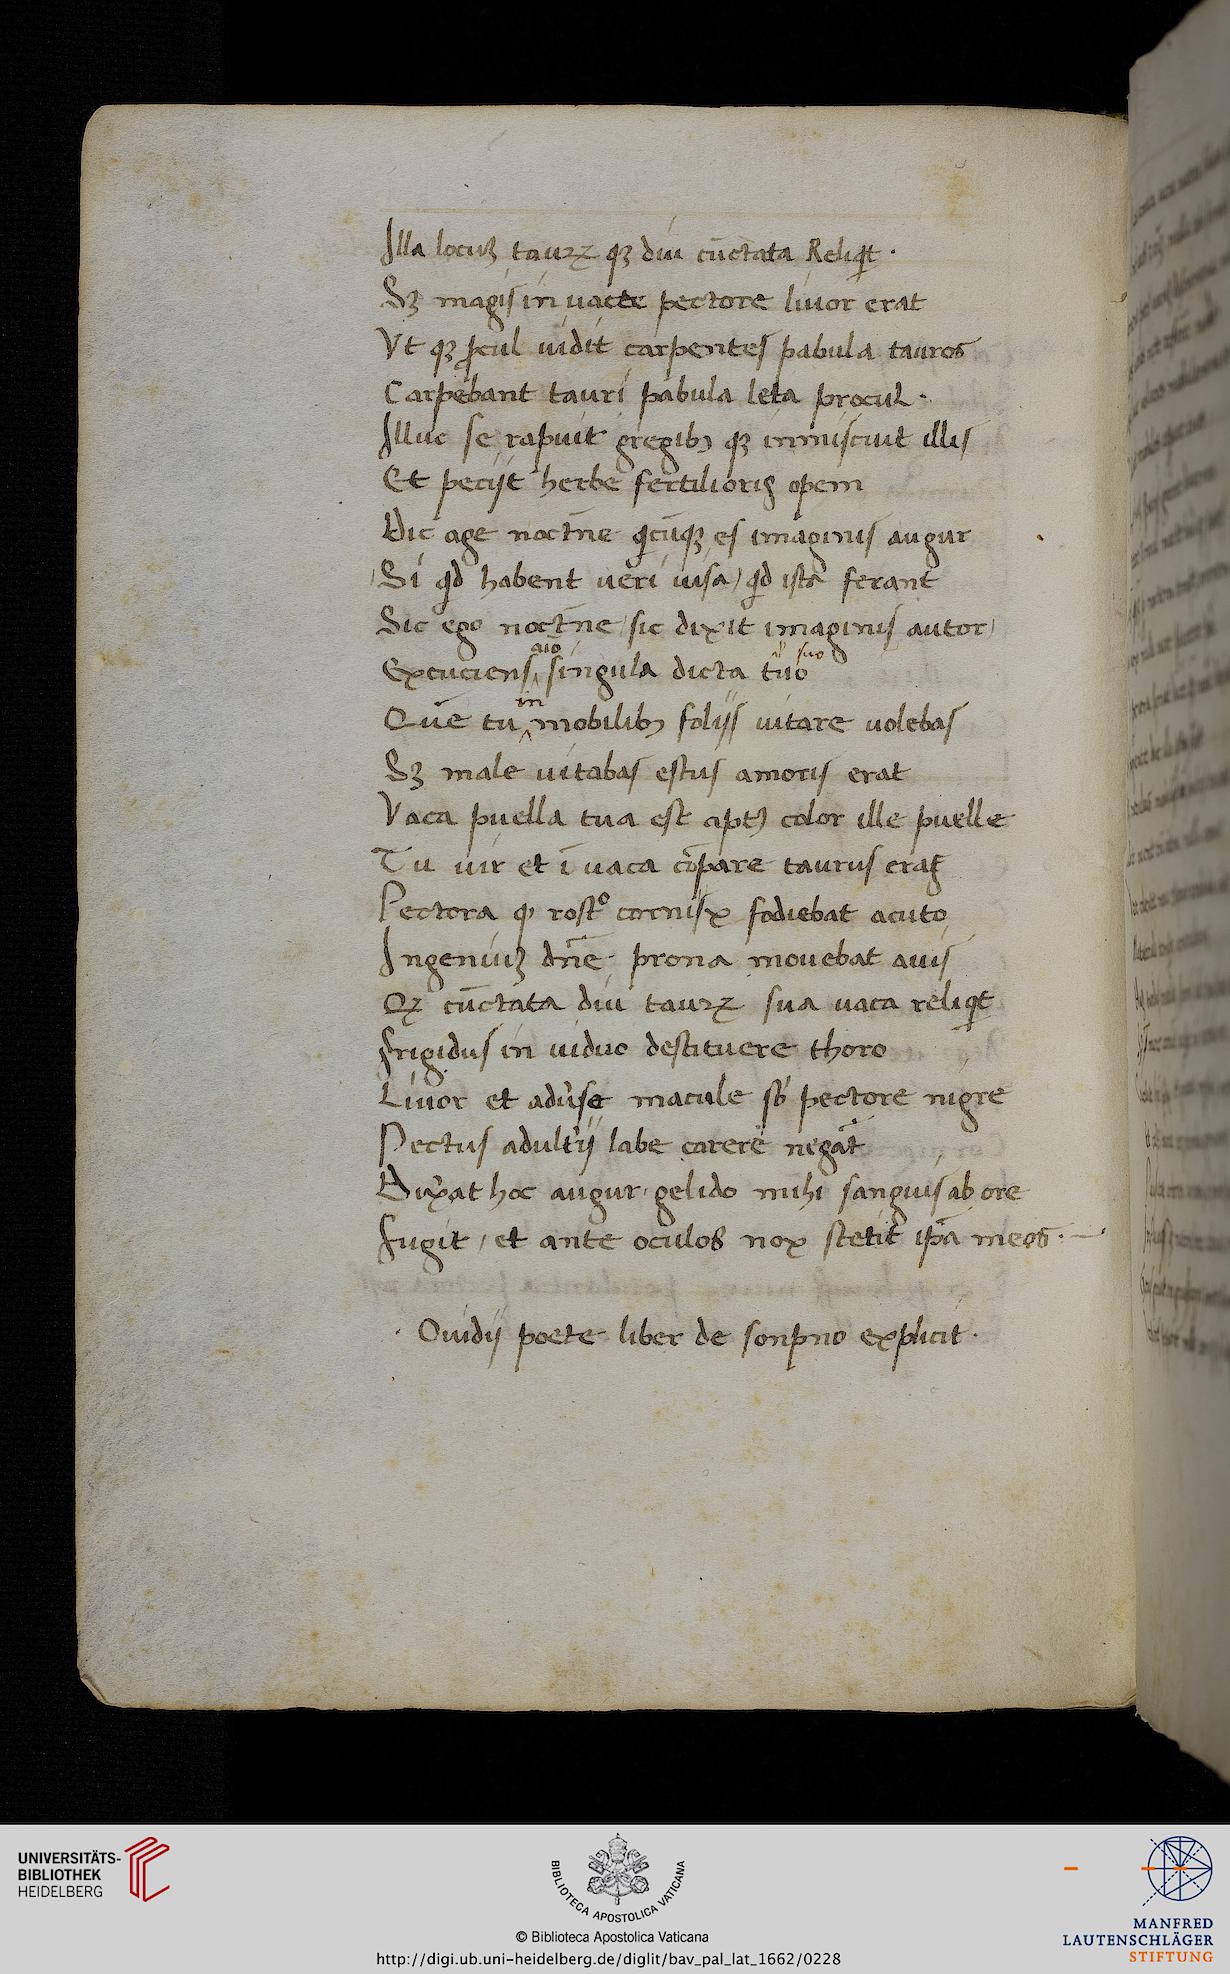 Illa locuꝫ tauꝝ qꝫ diu cūctata Reliqt ·
Sꝫ magis in uacce pectore liuor erat
Vt qꝫ ꝓcul uidit carpentes pabula tauros
Carpebant tauri pabula leta procul ·
Illuc se rapuit gregibꝫ qꝫ inmiscuit illis
Et peciit herbe fertilioris opem
Dic age noctn̄e qͥcūqꝫ es imaginis augur
Si qͥd habent ueri uisa / qͥd ista ferant
Sic ego noctn̄e / sic dixit imaginis autor
aīo
Excuciens singula dicta tuo
suo
in
Quē tu mobilibꝫ foliis uitare uolebas
Sꝫ male uitabas estus amoris erat
Vaca puella tua est aptꝫ color ille puelle
Tu uir et ī uaca cōpare taurus eras
Pectora ꝙ rostᵒ cornisx fodiebat acuto
Ingeniuꝫ dn̄e prona mouebat auis
Qꝫ cūctata diu tauꝝ sua uaca reliqt
Frigidus in uiduo destituere thoro
Liuor et aduse macule sb pectore nigre
Pectus adultij labe carere negāt
Dixat hoc augur gelido mihi sanguis ab ore
Fugit / et ante oculos nox stetit ip̄a meos · —
· Ouidij poete liber de sonpno explicit ·
UNIVERSITÄTS-
BIBLIOTHEK
HEIDELBERG
BIBLIOTECA APOSTOLICA VATICANA
© Biblioteca Apostolica Vaticana
http://digi.ub.uni-heidelberg.de/diglit/bav_pal_lat_1662/0228
MANFRED
LAUTENSCHLÄGER
STIFTUNG